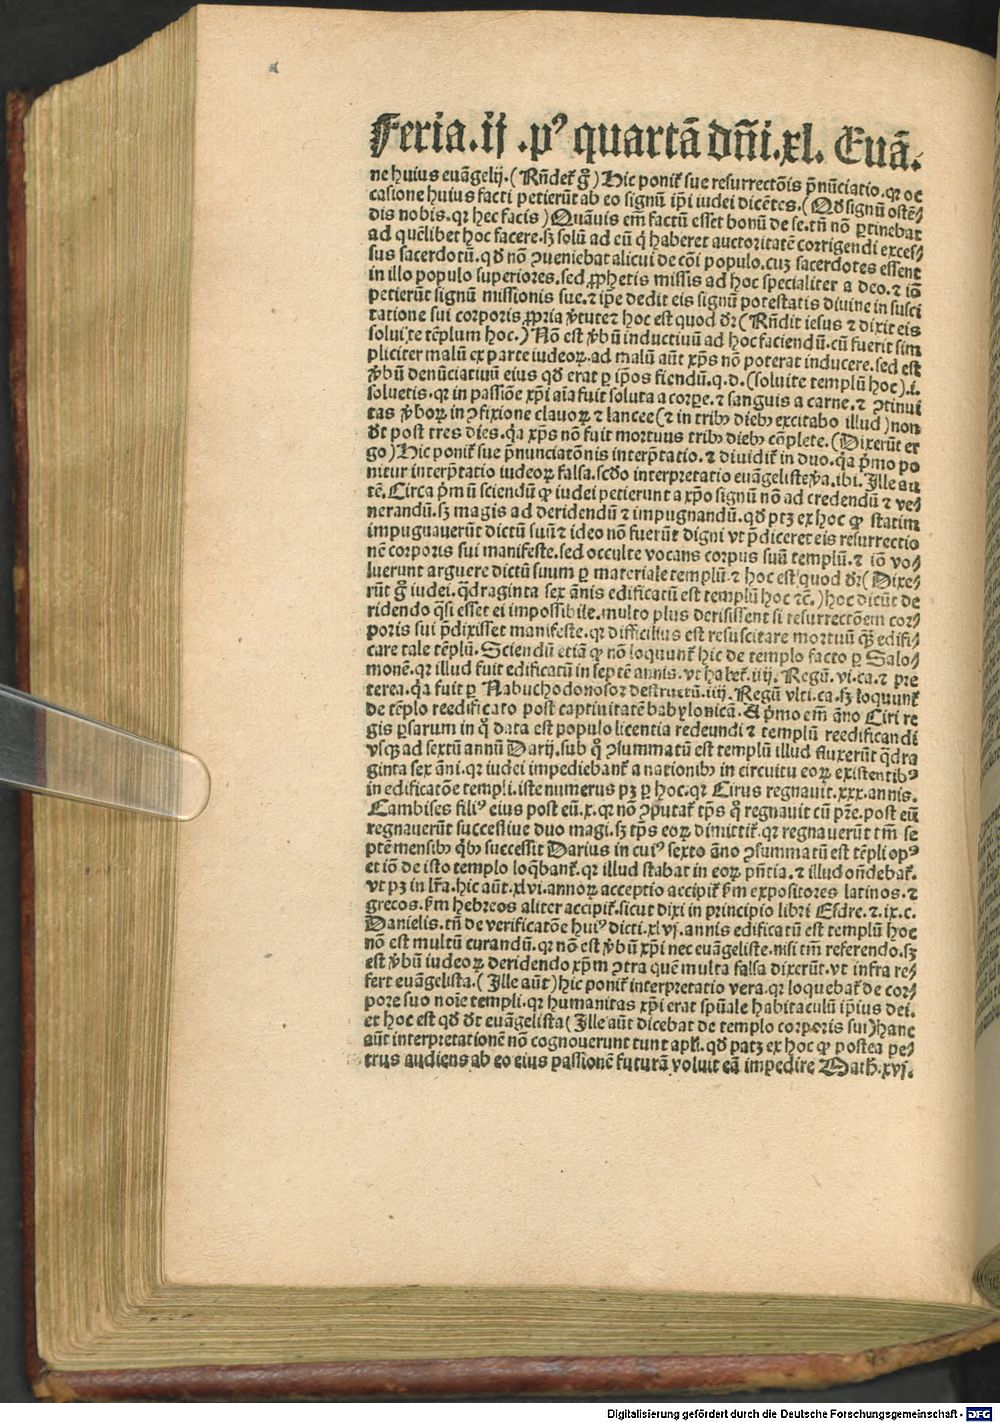 Feria.ij.pꝰ quartā dñi.xl. Euā.
ne huius euāgelij.(Rñdeẗ g̊) Hic poniẗ sue resurrectōis p̄nūciatio.qꝛ oc
casione huius facti petierūt ab eo signū ip̄i iudei dicētes.(Qđ signū ostē⸗
dis nobis.qꝛ hec facis) Quāuis em̄ factū esset bonū de se.tn̄ nō ꝑtinebat
ad quēlibet hoc facere.sꝫ solū ad eū q̇ haberet auctoritatē corrigendi exces⸗
sus sacerdotū.qđ nō ↄueniebat alicui de cōi populo.cuꝫ sacerdotes essent
in illo populo superiores.sed ꝓphetis missis ad hoc specialiter a deo.⁊ iō
petierūt signū missionis sue.⁊ ip̄e dedit eis signū potestatis diuine in susci
tatione sui corporis ꝓpria v̇tute⁊ hoc est quod dꝛ̄ (Rñdit iesus ⁊ dixit eis
soluite tēplum hoc.) Nō est v̇bū inductiuū ad hoc faciendū.cū fuerit sim
pliciter malū ex parte iudeoꝝ.ad malū aūt xp̄s nō poterat inducere.sed est
v̇bū denūciatiuū eius qđ erat ꝑ ip̄os fiendū.q.d.(soluite templū hoc).i.
soluetis.qꝛ in passiōe xp̄i aīa fuit soluta a corꝑe.⁊ sanguis a carne.⁊ ↄtinui
tas v̇boꝝ in ↄfixione clauoꝝ ⁊ lancee(⁊ in tribꝰ diebꝰ excitabo illud) non
dt̄ post tres dies.q̇a xp̄s nō fuit mortuus tribꝰ diebꝰ cōplete.(Dixerūt er
go) Hic poniẗ sue p̄nunciatōnis interp̄tatio.⁊ diuidiẗ in duo.q̇a ṗmo po
nitur interp̄tatio iudeoꝝ falsa.scđo interpretatio euāgeliste v̇a.ibi.Ille au
tē.Circa ṗmū sciendū ꝙ iudei petierunt a xp̄o signū nō ad credendū ⁊ ve⸗
nerandū.sꝫ magis ad deridendū ⁊ impugnandū.qđ ptꝫ ex hoc ꝙ statim
impugnauerūt dictū suū ⁊ ideo nō fuerūt digni vt p̄diceret eis resurrectio
nē corporis sui manifeste.sed occulte vocans corpus suū templū.⁊ iō vo⸗
luerunt arguere dictū suum ꝑ materiale templū.⁊ hoc est quod dꝛ̄ (Dixe⸗
rūt g̊ iudei.q̇draginta sex ānis edificatū est templū hoc ⁊c̄.) hoc dicūt de
ridendo q̇si esset ei impossibile.multo plus derisissent si resurrectōem cor⸗
poris sui p̄dixisset manifeste.qꝛ difficilius est resuscitare mortuū q̄ꝫ edifi⸗
care tale tēplū. Sciendū etiā ꝙ nō loquunẗ hic de templo facto ꝑ Salo⸗
monē.qꝛ illud fuit edificatū in septē annis.vt habeẗ.iij. Regū.vi.ca.⁊ pre
terea.q̇a fuit ꝑ Nabuchodonosor destructū.iiij. Regū vlti.ca.sꝫ loquunẗ
de tēplo reedificato post captiuitatē babylonicā. A ṗmo em̄ āno Ciri re
gis ꝑsarum in q̊ data est populo licentia redeundi ⁊ templū reedificandi
vsqꝫ ad sextū annū Darij.sub q̊ ↄsummatū est templū illud fluxerūt q̇dra
ginta sex āni.qꝛ iudei impediebanẗ a nationibꝰ in circuitu eoꝝ existentibꝰ
in edificatōe templi.iste numerus pꝫ ꝑ hoc.qꝛ Cirus regnauit.xxx.annis.
Cambises filiꝰ eius post eū.x.qꝛ nō ↄputaẗ tp̄s q̊ regnauit cū pr̄e.post eū
regnauerūt successiue duo magi.sꝫ tp̄s eoꝝ dimittiẗ.qꝛ regnauerūt tm̄ se
ptē mensibꝰ q̇bꝰ successit Darius in cuiꝰ sexto āno ↄsummatū est tēpli opꝰ
et iō de isto templo loq̄banẗ.qꝛ illud stabat in eoꝝ pn̄tia.⁊ illud on̄debaẗ.
vt pꝫ in lr̄a.hic aūt.xlvi.annoꝝ acceptio accipiẗ ẜm expositores latinos.⁊
grecos.ẜm hebreos aliter accipiẗ.sicut dixi in principio libri Esdre.⁊.ix.c.
Danielis.tn̄ de verificatōe huiꝰ dicti.xlvj.annis edificatū est templū hoc
nō est multū curandū.qꝛ nō est v̇bū xp̄i nec euāgeliste.nisi tm̄ referendo.sꝫ
est v̇bū iudeoꝝ deridendo xp̄m ↄtra quē multa falsa dixerūt.vt infra re⸗
fert euāgelista.( Ille aūt) hic poniẗ interpretatio vera.qꝛ loquebaẗ de cor⸗
pore suo noīe templi.qꝛ humanitas xp̄i erat spūale habitaculū ip̄ius dei.
et hoc est qđ dt̄ euāgelista( Ille aūt dicebat de templo corporis sui) hanc
aūt interpretationē nō cognouerunt tunt apl̄i.qđ patꝫ ex hoc ꝙ postea pe⸗
trus audiens ab eo eius passionē futurā voluit eā impedire Math̄.xvj.
Digitalisierung gefördert durch die Deutsche Forschungsgemeinschaft - DFG